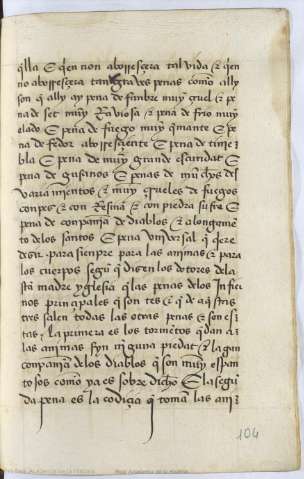 q̃lla E quen non aborresçera tal vida & quen
no aborresçera tan graves penas como ally
son q̃ ally ay pena de fanbre muy cruel & pe
na de set muy Raviosa & pena de frio muy
elado E pena de fuego muy q̃mante E pe
na de fedor aborresçiente E pena de tinie
bla E pena de muy grande escuridat E
pena de gusanos E penas de muchos des
variamientos & muy crueles de fuegos
con pez & con Resina & con piedra sufre E
pena de conpania de diablos & alongamien
to delos santos E pena universal q̃ q̃ere
desir para sienpre para las animas & para
los cuerpos segũ q̃ disen los dotores dela
stã madre yglesia q̃ las penas delos Infier
nos prinçipales q̃ son tres & q̃ de aq̃stas
tres salen todas las otras penas & son esi
tas, la primera es los tormẽtos q̃ dan a
las animas syn nĩguna piedat & la gran
conpania delos diablos q̃ son muy espan
tosos como ya es sobre dicho E la segũ
da pena es la codiçia q̃ toman las ani
104